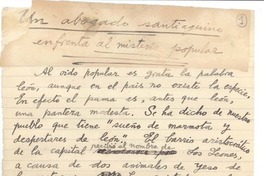 Un abogado santiaguino
enfrenta al misterio popular
1
Al oido popular es grata la palabra
león, aunque en el país no existe la especie.
En efecto el puma es, antes que león,
una pantera modesta. Se ha dicho de nuestro
pueblo que tiene sueño de marmota y
despertares de león. El barrio aristocrático
de la capital recibió el nombre de Los Leones,
a causa de dos animales de yeso de